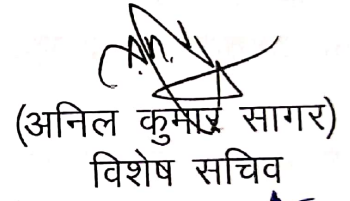 (अनिल कुमार सागर)
विशेष सचिव